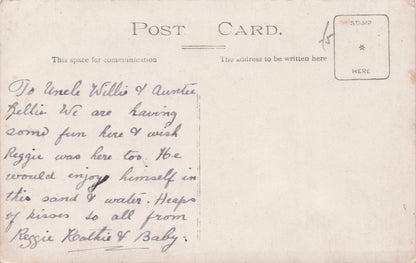 POST CARD.
STAMP
*
HERE
This space for communication
The address to be written here
To Uncle Willie & Auntie
Nellie We are having
some fun here & wish
Reggie was here too. He
would enjoy himself in
this sand & water. Heaps
of kisses to all from
Reggie Kathie & Baby.